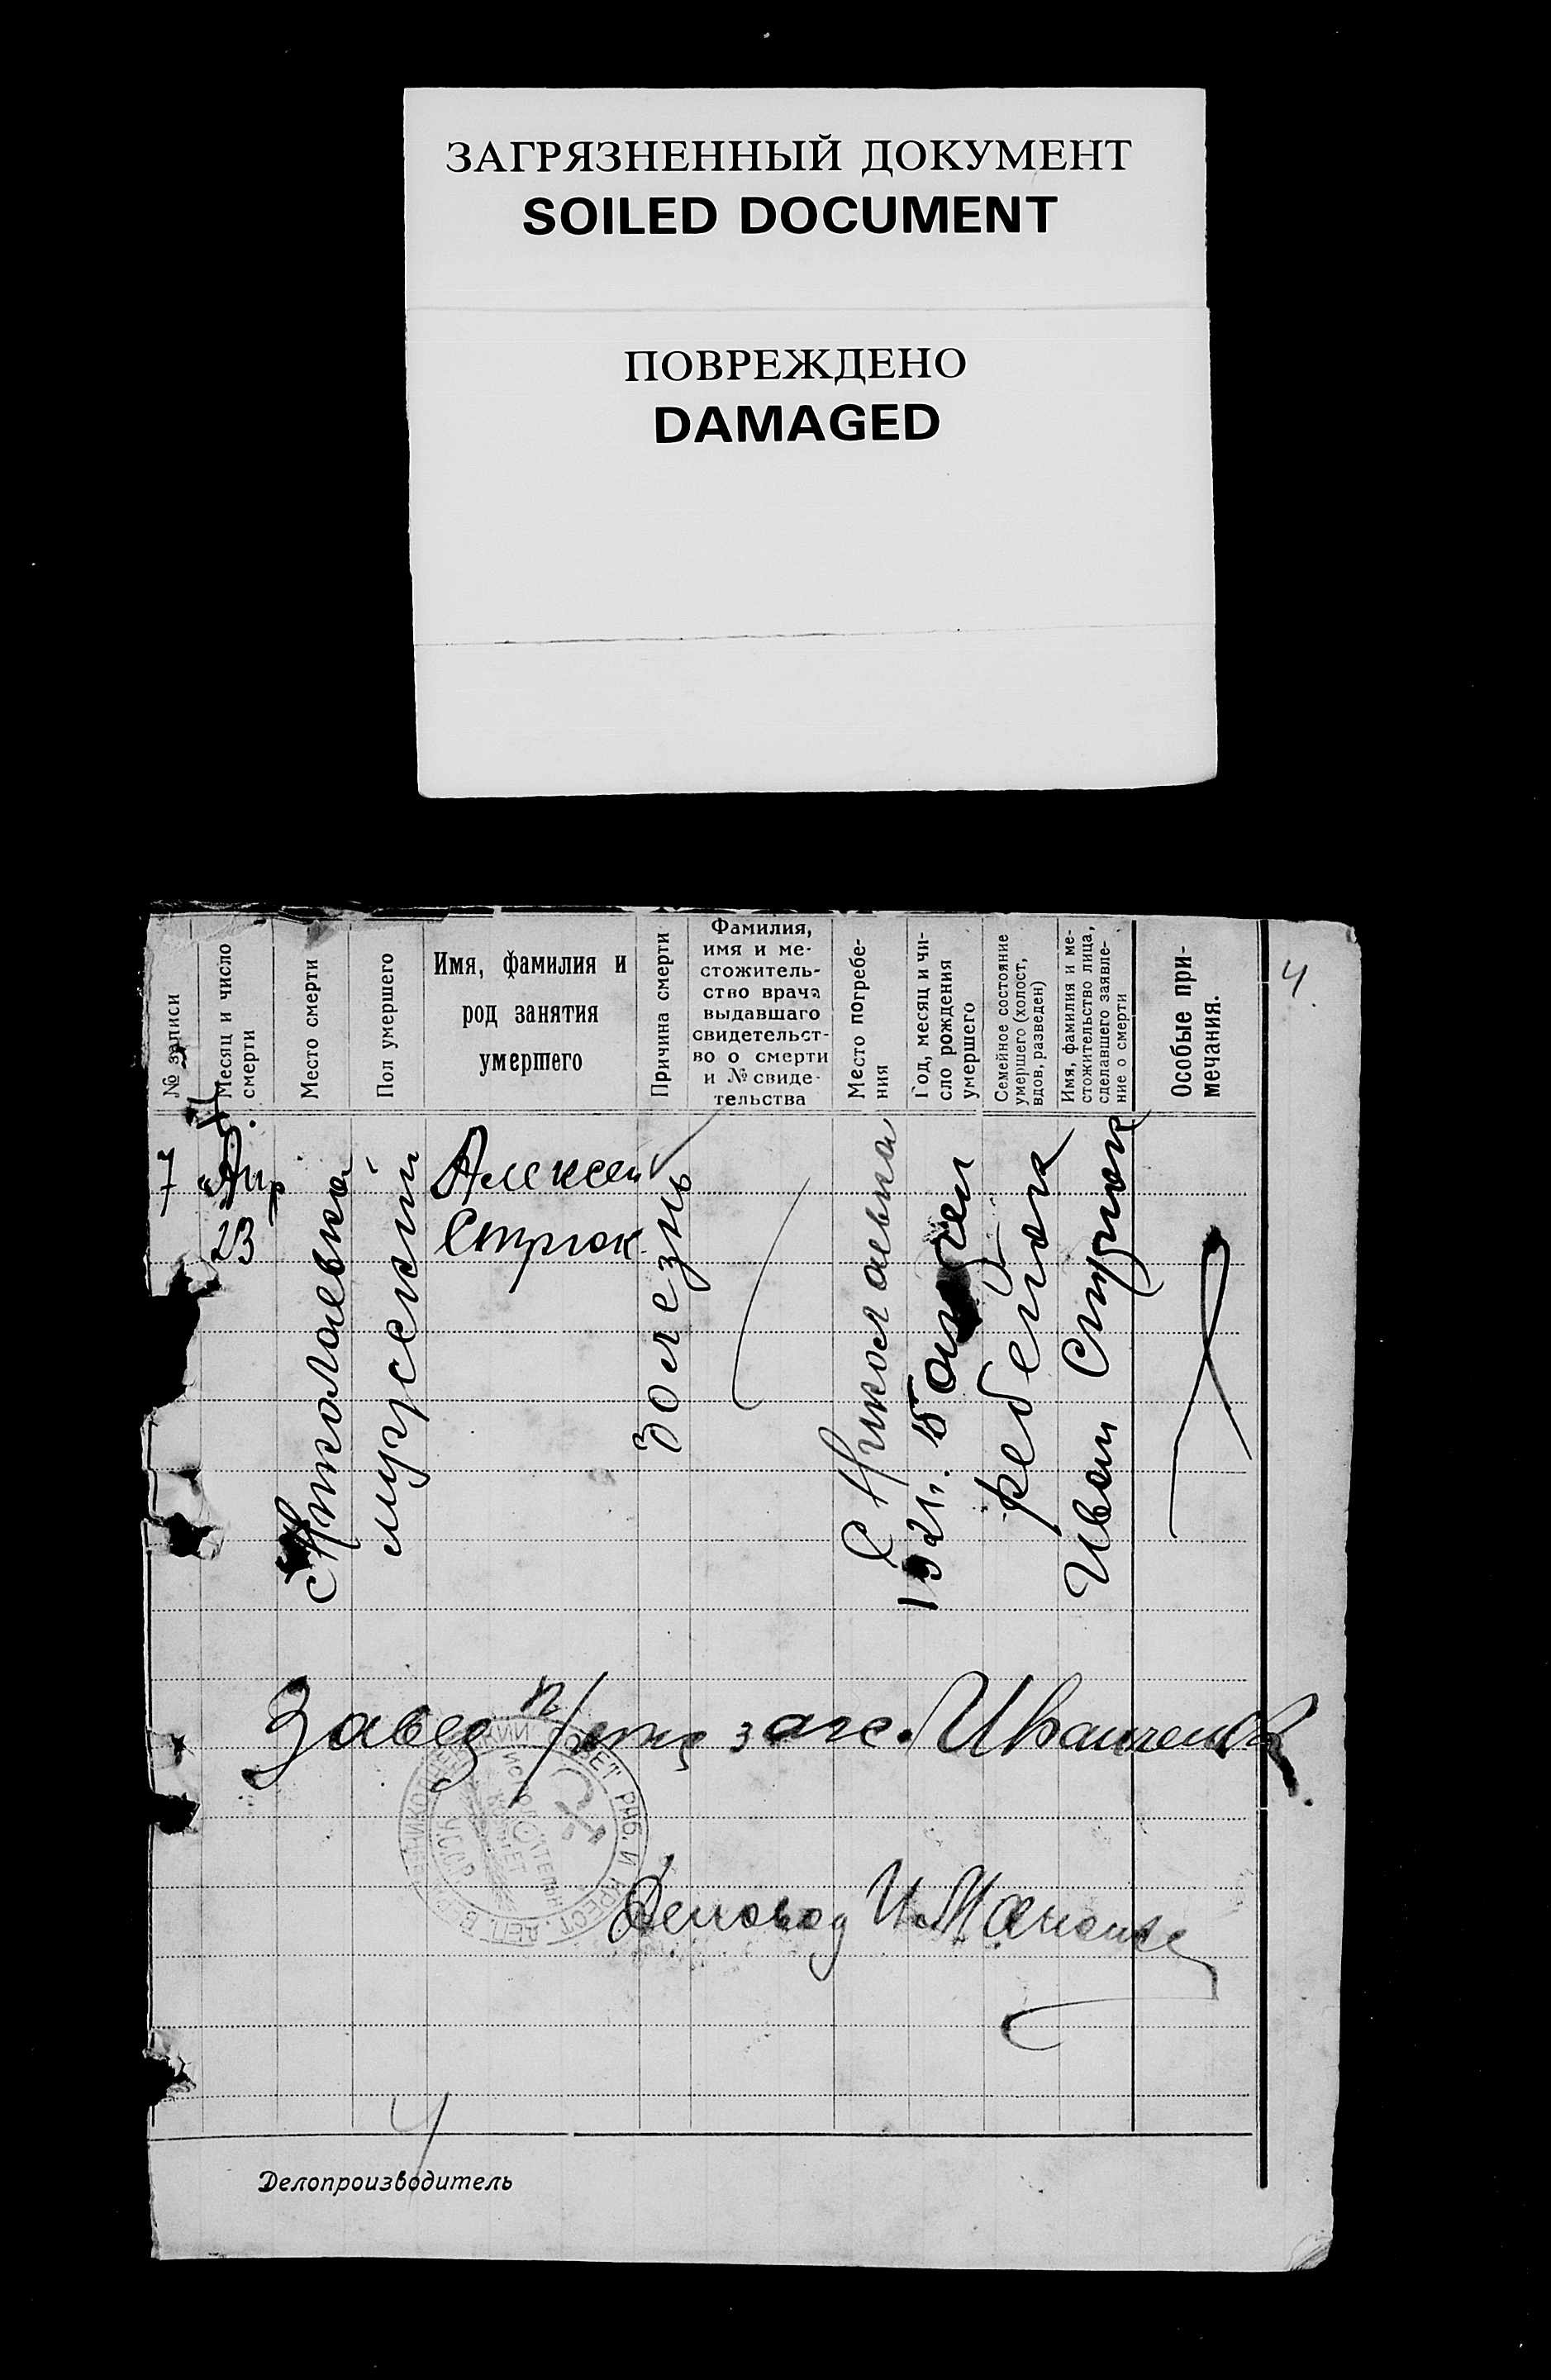 ЗАГРЯЗНЕННЫЙ ДОКУМЕНТ
SOILED DOCUMENT
ПОВРЕЖДЕНО
DAMAGED
4
№ записи
Месяц и число
смерти
Место смерти
Пол умершего
Имя, фамилия и
род занятия
умершего
Причина смерти
Фамилия,
имя и ме-
стожитель-
ство врача
выдавшаго
свидетельст-
во о смерти
и № свиде-
тельства
Место погребе-
ния
Год, месяц и чи-
сло рождения
умершего
Семейное состояние
умершего (холост,
вдов, разведен)
Имя, фамилия и ме-
стожительство лица,
сделавшего заявле-
ние о смерти
Особые при-
мечания.
7
Апр
23
с Николаевка
мужской
Алексей
Стрюк
болезнь
С Николаевка
1921.
ребенок
Иван Стрюк
Завед п/отд загс. Иванченко
Деловод И.
СОВЕТ РАБ. И КРЕСТ. ДЕП.
ИСПОЛНИТЕЛЬН
КОМИТЕТ
УССР
4
Делопроизводитель